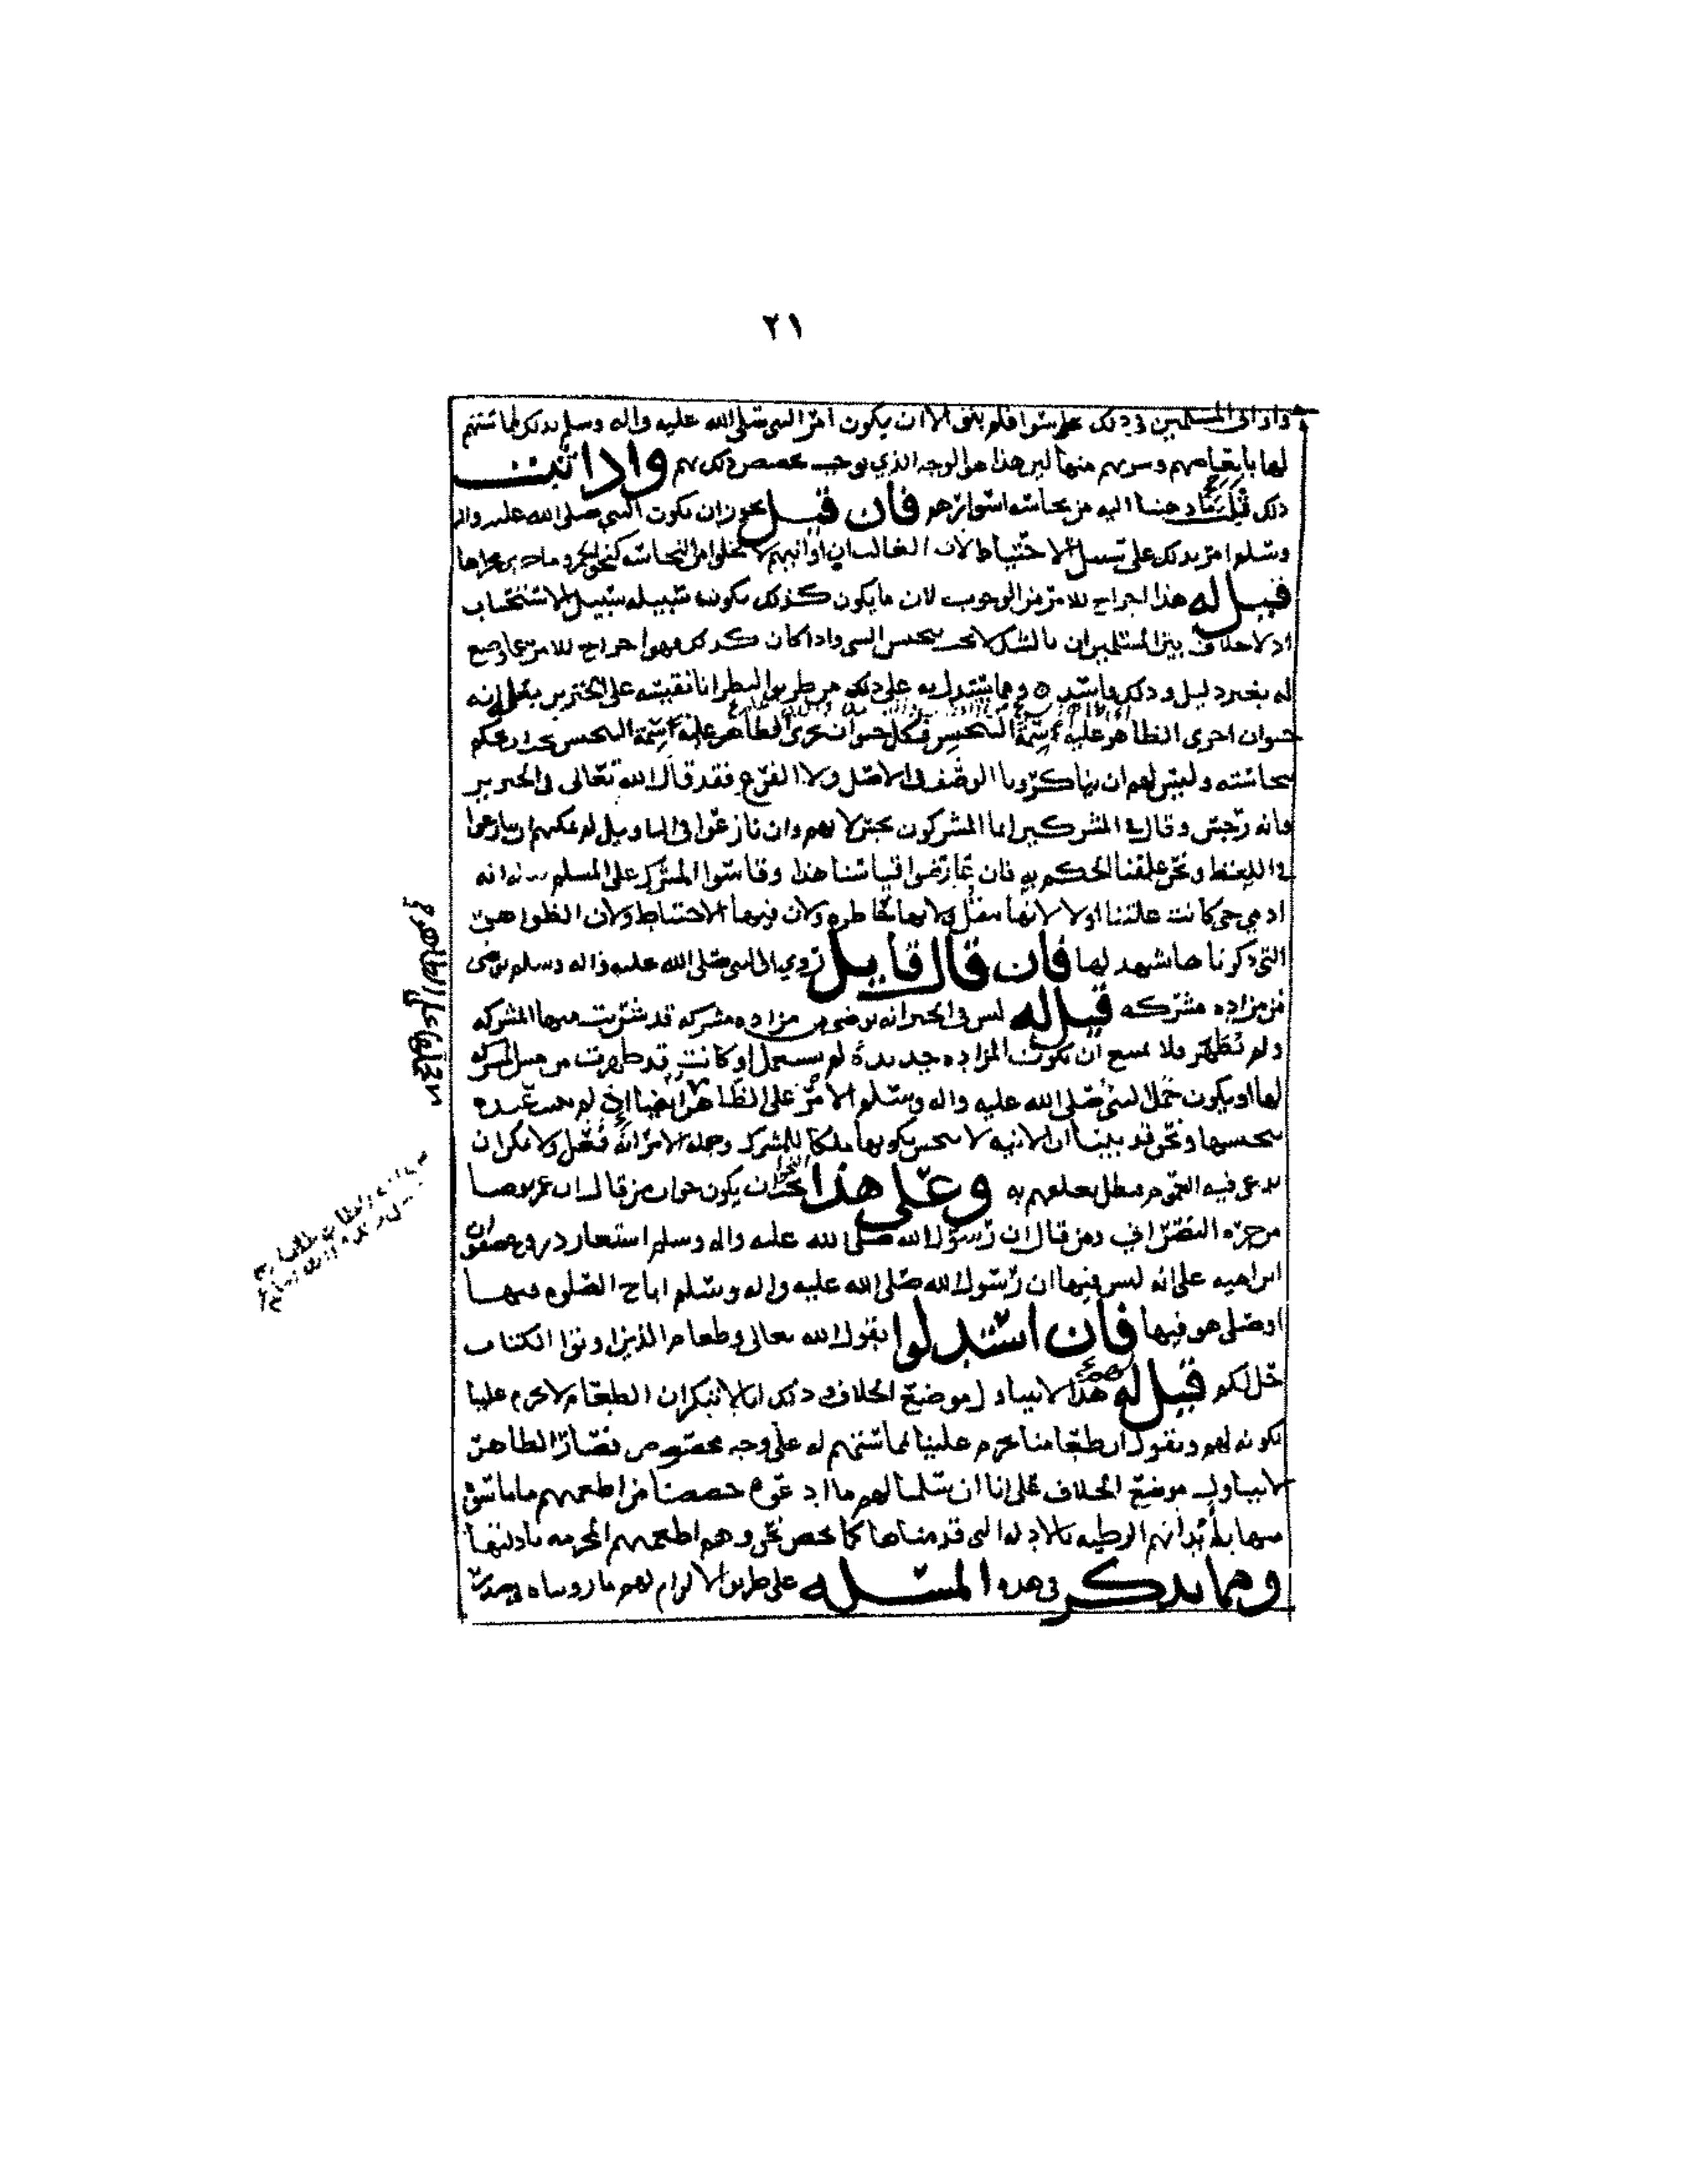 ٢١
واواني المسلمين في ذلك على سوا فلم يبق الا ان يكون امر النبي صلى الله عليه واله وسلم بذلك لمماستهم
لها بايديهم منها ليس هذا هو الوجه الذي يوجب تخصيص ذلك بهم واذا ثبت
ذلك اليه من نجاسة اسوارهم فان قيل يجوز ان يكون النبي صلى الله عليه واله
وسلم امر بذلك على سبيل الاحتياط لان الغالب ان اوانيهم لا تخلوا من النجاسة كنحو الخمر وما جرى مجراها
قيل له هذا اخراج للامر من الوجوب لان ما يكون كذلك يكون سبيله سبيل الاستحباب
اذ لا خلاف بين المسلمين ان بالشك لا يجب تنجيس الشي واذا كان كذلك فهو اخراج للامر عما وضع
له بغير دليل وذلك فاسد ومما يستدل به على ذلك من طريق النظر انا نقيسه على الخنزير بعلة انه
حيوان اجرى الظاهر عليه سمة التنجيس فكل حيوان جرى الظاهر عليه سمة التنجيس يجب ان يحكم
بنجاسته وليس لهم ان يناكرونا الوصف في الاصل ولا الفرع فقد قال الله تعالى في الخنزير
فانه رجس وقال في المشركين انما المشركون نجس لانهم وان نازعوا في التاويل لم يمكنهم ان ينازعوا
في اللفظ ونحن علقنا الحكم به فان عارضوا قياسنا هذا وقاسوا المشرك على المسلم انه
ادمي حي كانت علتنا اولا لانها ولانها حاظرة ولان فيها الاحتياط ولان الظواهر
التي ذكرناها تشهد لها فان قال قايل روي ان النبي صلى الله عليه واله وسلم توضى
من مزادة مشركه قيل له ليس في الخبر انه توضى من مزادة مشركه قد شربت منها المشركه
ولم تطهر ولا يمتنع ان تكون المزادة جديدة لم تستعمل او كانت قد طهرت من
لها او يكون حمل النبي صلى الله عليه واله وسلم الامر على الظاهر ايضا اذ لم
تنجسها ونحن قد بينا ان الانيه لا تنجس بكونها ملكا للمشرك وجملة الامر انه فعل ولا يمكن ان
يدعى فيه العموم فبطل تعلقهم به وعلى هذا النحو يجوز ان يكون جواب من قال ان عمر توضا
من جرة النصراني ومن قال ان رسول الله صلى الله عليه واله وسلم استعار دروع صفوان
على انه ليس فيها ان رسول الله صلى الله عليه واله وسلم اباح الصلوه فيها
او صلى هو فيها فان استدلوا بقول الله تعالى وطعام الذين اوتوا الكتاب
حل لكم قيل له هذا لا يتناول موضع الخلاف وذلك انا لا ننكر ان الطعام لا يحرم علينا
بكونه لهم ونقول ان طعامنا يحرم علينا لمماستهم له على وجه مخصوص فصار الظاهر
لا يتناول موضع الخلاف على انا ان سلمنا لهم ما ادعوه خصصنا من اطعمتهم ما ماسوه
منها بابدانهم الرطبه بالادله التي قدمناها كما نخص نحن وهم اطعمتهم المحرمه بادلتها
ومما يذكر في هذه المسئله على طريق الالزام لهم ما رويناه